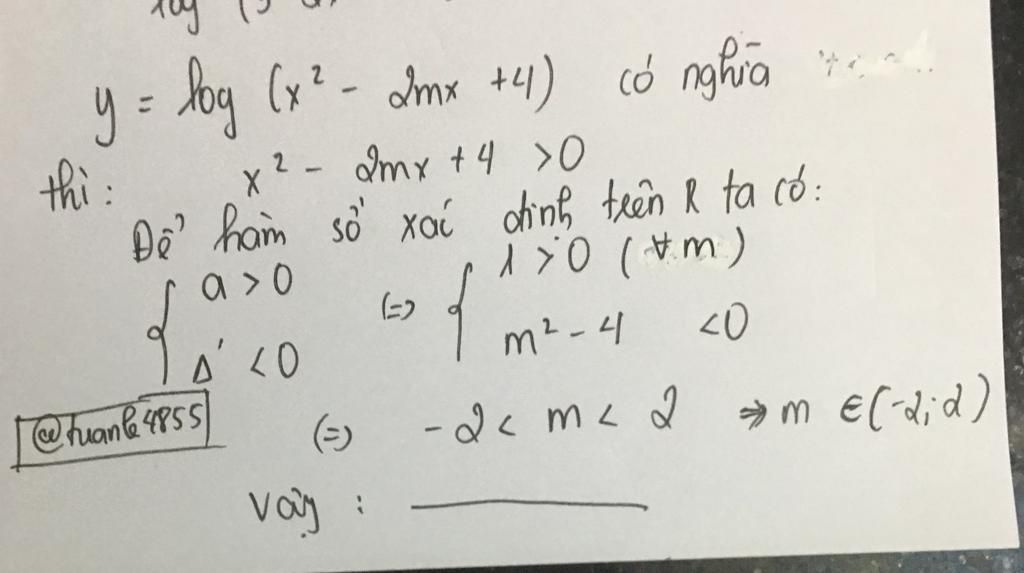 y = log (x² - 2mx + 4) có nghĩa
thì: x² - 2mx + 4 > 0
Để hàm số xác định trên R ta có:
{ a > 0 (=) { 1 > 0 (∀m)
Δ' < 0 m² - 4 < 0
@tuanle4855 (=) -2 < m < 2 => m ∈ (-2; 2)
Vậy :